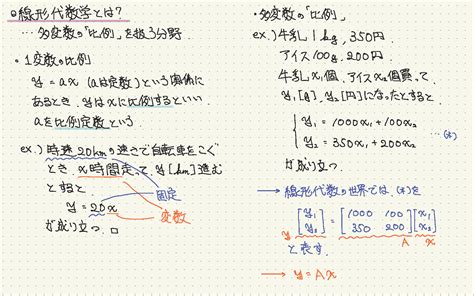 ◎線形代数学とは?
…多変数の「比例」を扱う分野.
・1変数の比例
y=ax (aは定数)という関係に
あるとき, yはxに比例するといい
aを比例定数という.
ex.) 時速20kmの速さで自転車をこぐ
とき, x時間走って y[km]進む
とすると
y=20x
が成り立つ. □
固定
変数
・多変数の「比例」
ex.) 牛乳1kg, 350円
アイス100g, 200円
牛乳x₁個, アイスx₂個買って
y₁[g], y₂[円]になったとすると
y₁ = 1000x₁+100x₂
y₂ = 350x₁+200x₂ …(*)
が成り立つ
→ 線形代数の世界では,(*)を
[y₁ y₂] = [1000 100 350 200][x₁ x₂]
y A x
と表す.
→ y=Ax